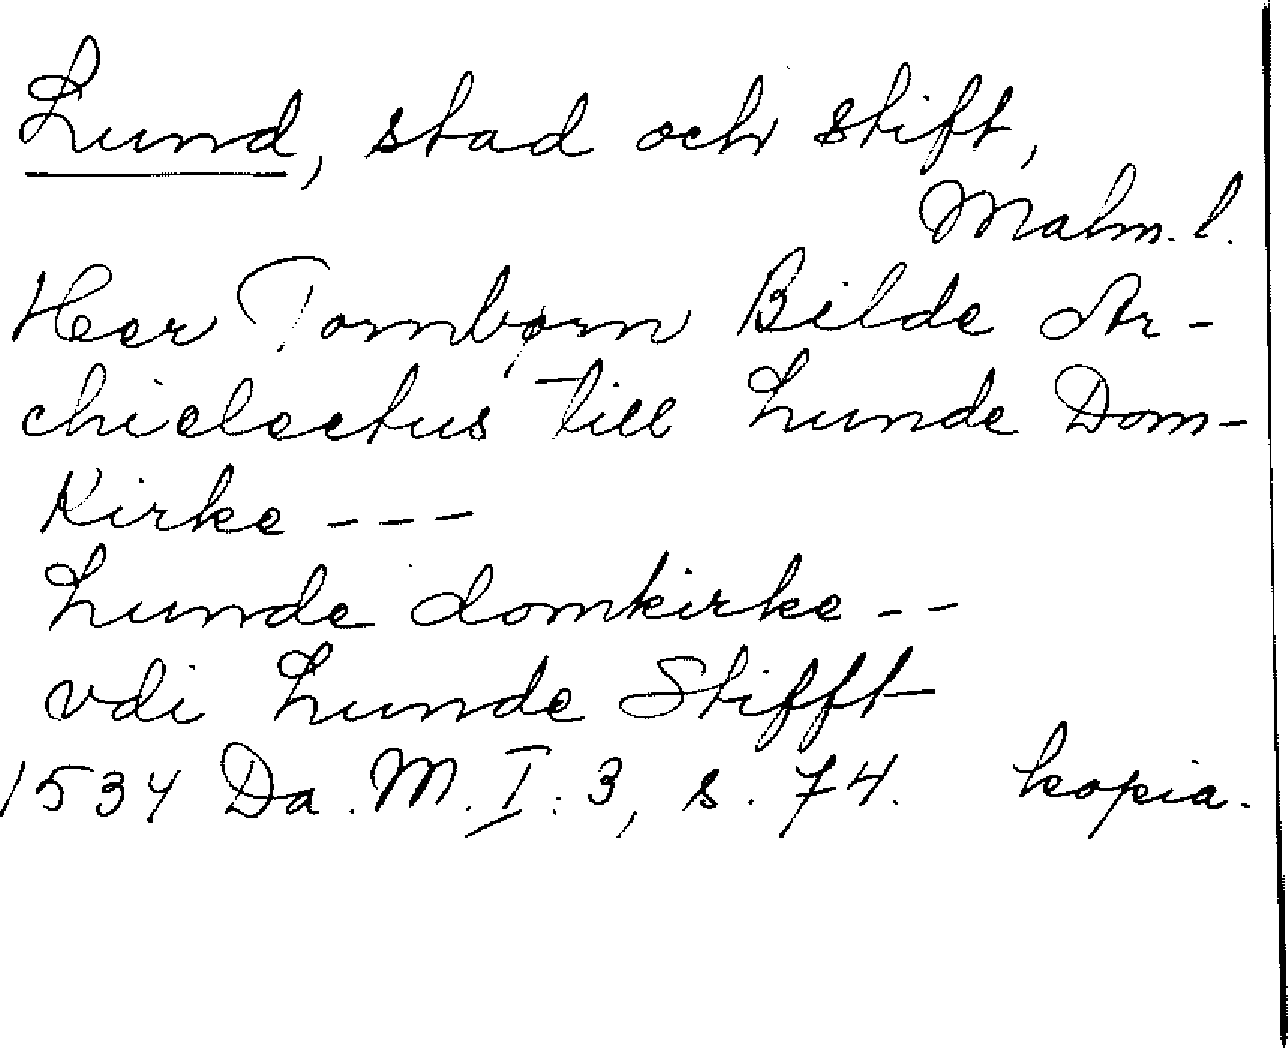 Lund, stad och stift,
Malm. l.
Heer Tornbørn Bilde Ar-
chielectus till Lunde Dom-
Kirke ---
Lunde domkirke --
vdi Lunde Stifft
1534 Da. M. I: 3, s. 74. kopia.